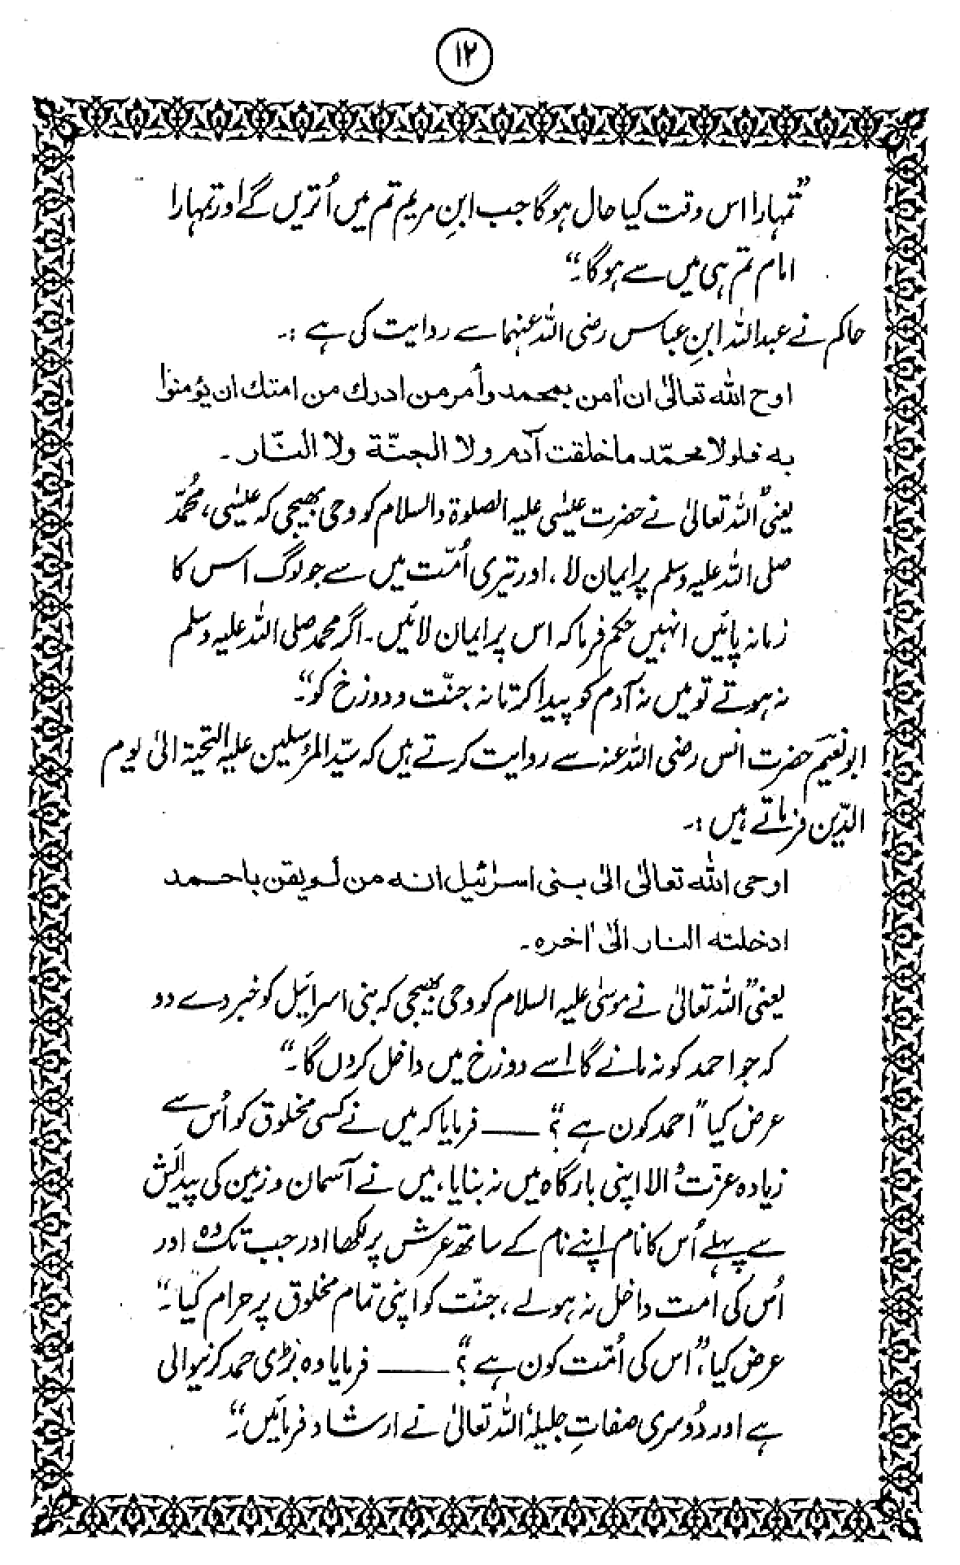 ۱۲
”تمہارا اس وقت کیا حال ہوگا جب ابنِ مریم تم میں اُتریں گے اور تمہارا
امام تم ہی میں سے ہوگا۔“
حاکم نے عبداللہ ابنِ عباس رضی اللہ عنہما سے روایت کی ہے :۔
اوح اللہ تعالیٰ ان اٰمن بمحمد وأمر من ادرك من امتك ان یؤمنوا
به فلولا محمّد ما خلقت آدم ولا الجنّة ولا النّار۔
یعنی ”اللہ تعالیٰ نے حضرت عیسٰی علیہ الصلوۃ والسلام کو وحی بھیجی کہ عیسٰی، محمّد
صلی اللہ علیہ وسلم پر ایمان لا، اور تیری اُمّت میں سے جو لوگ اس کا
زمانہ پائیں انہیں حکم فرما کہ اس پر ایمان لائیں۔ اگر محمد صلی اللہ علیہ وسلم
نہ ہوتے تو میں نہ آدم کو پیدا کرتا نہ جنّت و دوزخ کو“۔
ابونعیم حضرت انس رضی اللہ عنہ سے روایت کرتے ہیں کہ سیّد المرسلین علیہ التحیۃ الیٰ یوم
الدّین فرماتے ہیں :۔
اوحی اللہ تعالیٰ الیٰ بنی اسرائیل انه من لم یقن باحمد
ادخلته النار الیٰ اٰخره۔
یعنی ”اللہ تعالیٰ نے موسٰی علیہ السلام کو وحی بھیجی کہ بنی اسرائیل کو خبر دے دو
کہ جو احمد کو نہ مانے گا اسے دوزخ میں داخل کروں گا۔“
عرض کیا ”احمد کون ہے؟“ —— فرمایا کہ میں نے کسی مخلوق کو اُس سے
زیادہ عزت والا اپنی بارگاہ میں نہ بنایا، میں نے آسمان و زمین کی پیدائش
سے پہلے اُس کا نام اپنے نام کے ساتھ عرش پر لکھا اور جب تک وہ اور
اُس کی امت داخل نہ ہولے، جنّت کو اپنی تمام مخلوق پر حرام کیا۔“
عرض کیا، ”اس کی اُمّت کون ہے؟“ —— فرمایا وہ بڑی حمد کرنیوالی
ہے اور دُوسری صفاتِ جلیلہ اللہ تعالیٰ نے ارشاد فرمائیں۔“